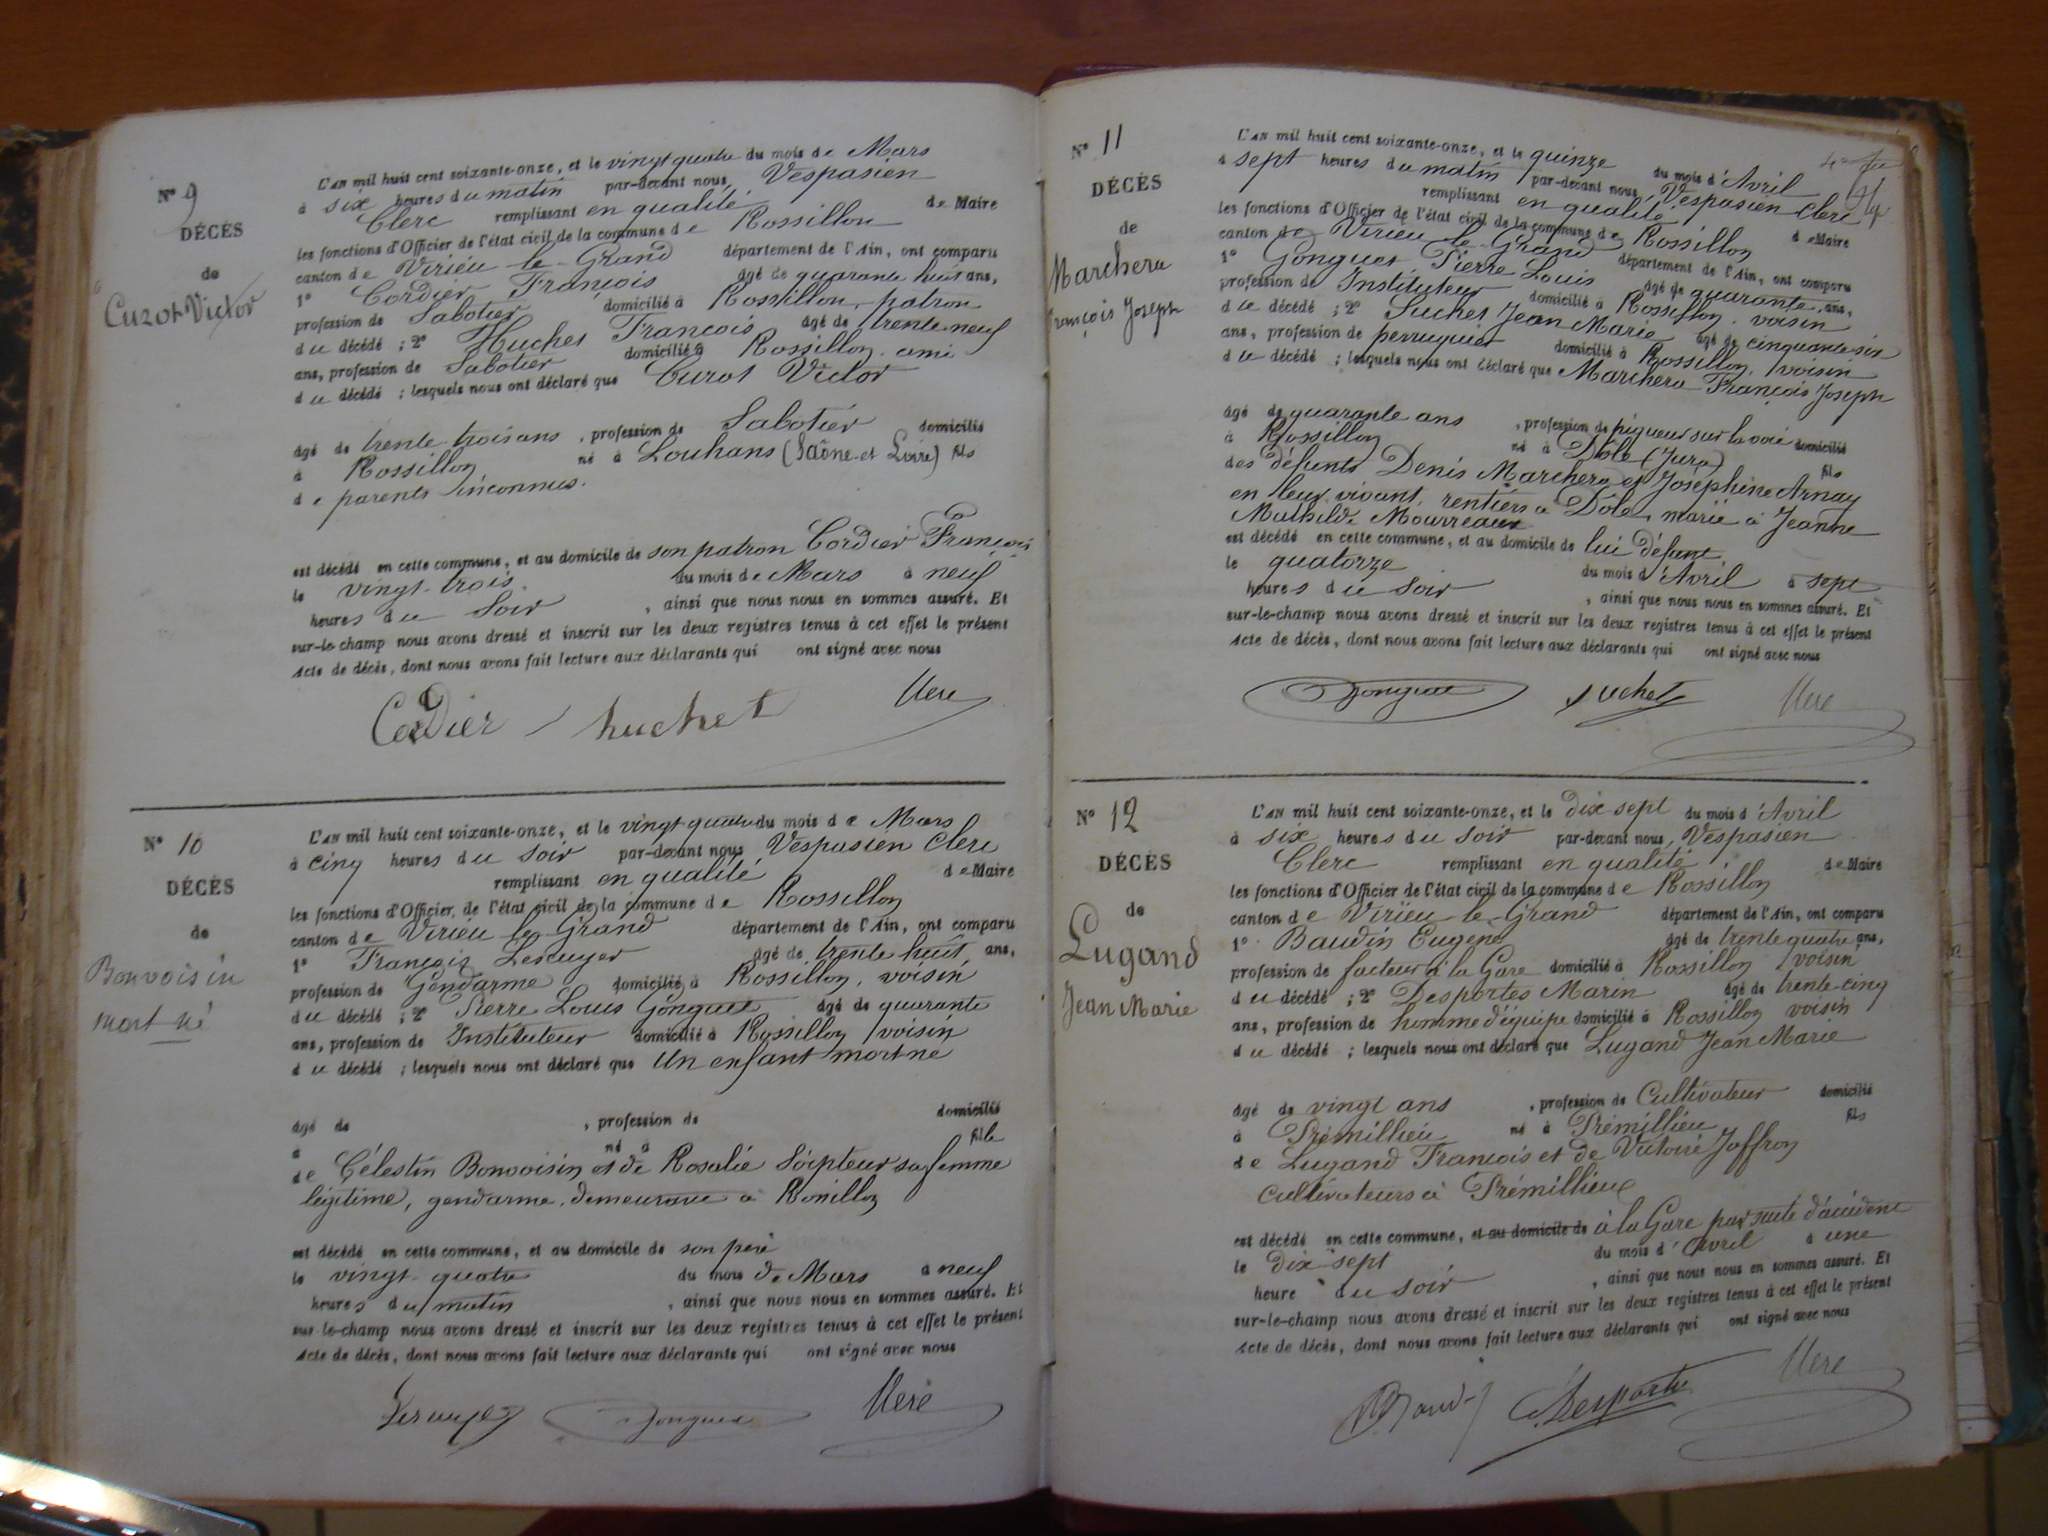 N° 9
DÉCÈS
de
Curot Victor
L'AN mil huit cent soixante-onze, et le vingt quatre du mois de Mars
à six heures du matin par-devant nous Vespasien
Clerc remplissant en qualité de Maire
les fonctions d'Officier de l'état civil de la commune de Rossillon
canton de Virieu le Grand département de l'Ain, ont comparu
1° Cordier François âgé de quarante huit ans,
profession de Sabotier domicilié à Rossillon, patron
du décédé ; 2° Huchet François âgé de trente neuf
ans, profession de Sabotier domicilié à Rossillon ami
du décédé ; lesquels nous ont déclaré que Curot Victor
âgé de trente trois ans, profession de Sabotier domicilié
à Rossillon né à Louhans (Saône-et Loire) fils
de parents inconnus.
est décédé en cette commune, et au domicile de son patron Cordier François
le vingt-trois du mois de Mars à neuf
heures du Soir, ainsi que nous nous en sommes assuré. Et
sur-le-champ nous avons dressé et inscrit sur les deux registres tenus à cet effet le présent
Acte de décès, dont nous avons fait lecture aux déclarants qui ont signé avec nous
Cordier huchet Clerc
N° 10
DÉCÈS
de
Bonvoisin
mort né
L'AN mil huit cent soixante-onze, et le vingt quatre du mois de Mars
à cinq heures du soir par-devant nous Vespasien Clerc
remplissant en qualité de Maire
les fonctions d'Officier de l'état civil de la commune de Rossillon
canton de Virieu le Grand département de l'Ain, ont comparu
1° François Lecuyer âgé de trente huit ans,
profession de Gendarme domicilié à Rossillon, voisin
du décédé ; 2° Pierre Louis Gonguet âgé de quarante
ans, profession de Instituteur domicilié à Rossillon voisin
du décédé ; lesquels nous ont déclaré que Un enfant mort né
âgé de , profession de domicilié
à né à fils
de Célestin Bonvoisin et de Rosalie sa femme
légitime, gendarme demeurant à Rossillon
est décédé en cette commune, et au domicile de son père
le vingt-quatre du mois de Mars à neuf
heures du matin, ainsi que nous nous en sommes assuré. Et
sur-le-champ nous avons dressé et inscrit sur les deux registres tenus à cet effet le présent
Acte de décès, dont nous avons fait lecture aux déclarants qui ont signé avec nous
Lecuyer Gonguet Clerc
N° 11
DÉCÈS
de
Marchera
François Joseph
L'AN mil huit cent soixante-onze, et le quinze du mois d'Avril
à sept heures du matin par-devant nous Vespasien Clerc
remplissant en qualité de Maire
les fonctions d'Officier de l'état civil de la commune de Rossillon
canton de Virieu le Grand département de l'Ain, ont comparu
1° Gonguet Pierre Louis âgé de quarante ans,
profession de Instituteur domicilié à Rossillon voisin
du décédé ; 2° Suchet Jean Marie âgé de cinquante six
ans, profession de perruquier domicilié à Rossillon, voisin
du décédé ; lesquels nous ont déclaré que Marchera François Joseph
âgé de quarante ans, profession de piqueur sur la voie domicilié
à Rossillon né à Dôle (Jura) fils
des défunts Denis Marchera et Joséphine Arnay
en leur vivant rentiers à Dôle, marié à Jeanne
Mathilde Mourreaux
est décédé en cette commune, et au domicile de lui défunt
le quatorze du mois d'Avril à sept
heures du soir, ainsi que nous nous en sommes assuré. Et
sur-le-champ nous avons dressé et inscrit sur les deux registres tenus à cet effet le présent
Acte de décès, dont nous avons fait lecture aux déclarants qui ont signé avec nous
Gonguet Suchet Clerc
N° 12
DÉCÈS
de
Lugand
Jean Marie
L'AN mil huit cent soixante-onze, et le dix sept du mois d'Avril
à six heures du soir par-devant nous, Vespasien
Clerc remplissant en qualité de Maire
les fonctions d'Officier de l'état civil de la commune de Rossillon
canton de Virieu-le-Grand département de l'Ain, ont comparu
1° Baudin Eugène âgé de trente quatre ans,
profession de facteur à la Gare domicilié à Rossillon voisin
du décédé ; 2° Desportes Marin âgé de trente-cinq
ans, profession de homme d'équipe domicilié à Rossillon voisin
du décédé ; lesquels nous ont déclaré que Lugand Jean Marie
âgé de vingt ans, profession de Cultivateur domicilié
à Prémillieu né à Prémillieu fils
de Lugand François et de Victoire Joffron
Cultivateurs à Prémillieu
est décédé en cette commune, et au domicile de à la Gare par suite d'accident
le dix sept du mois d'avril à une
heure du soir, ainsi que nous nous en sommes assuré. Et
sur-le-champ nous avons dressé et inscrit sur les deux registres tenus à cet effet le présent
Acte de décès, dont nous avons fait lecture aux déclarants qui ont signé avec nous
Desportes Clerc